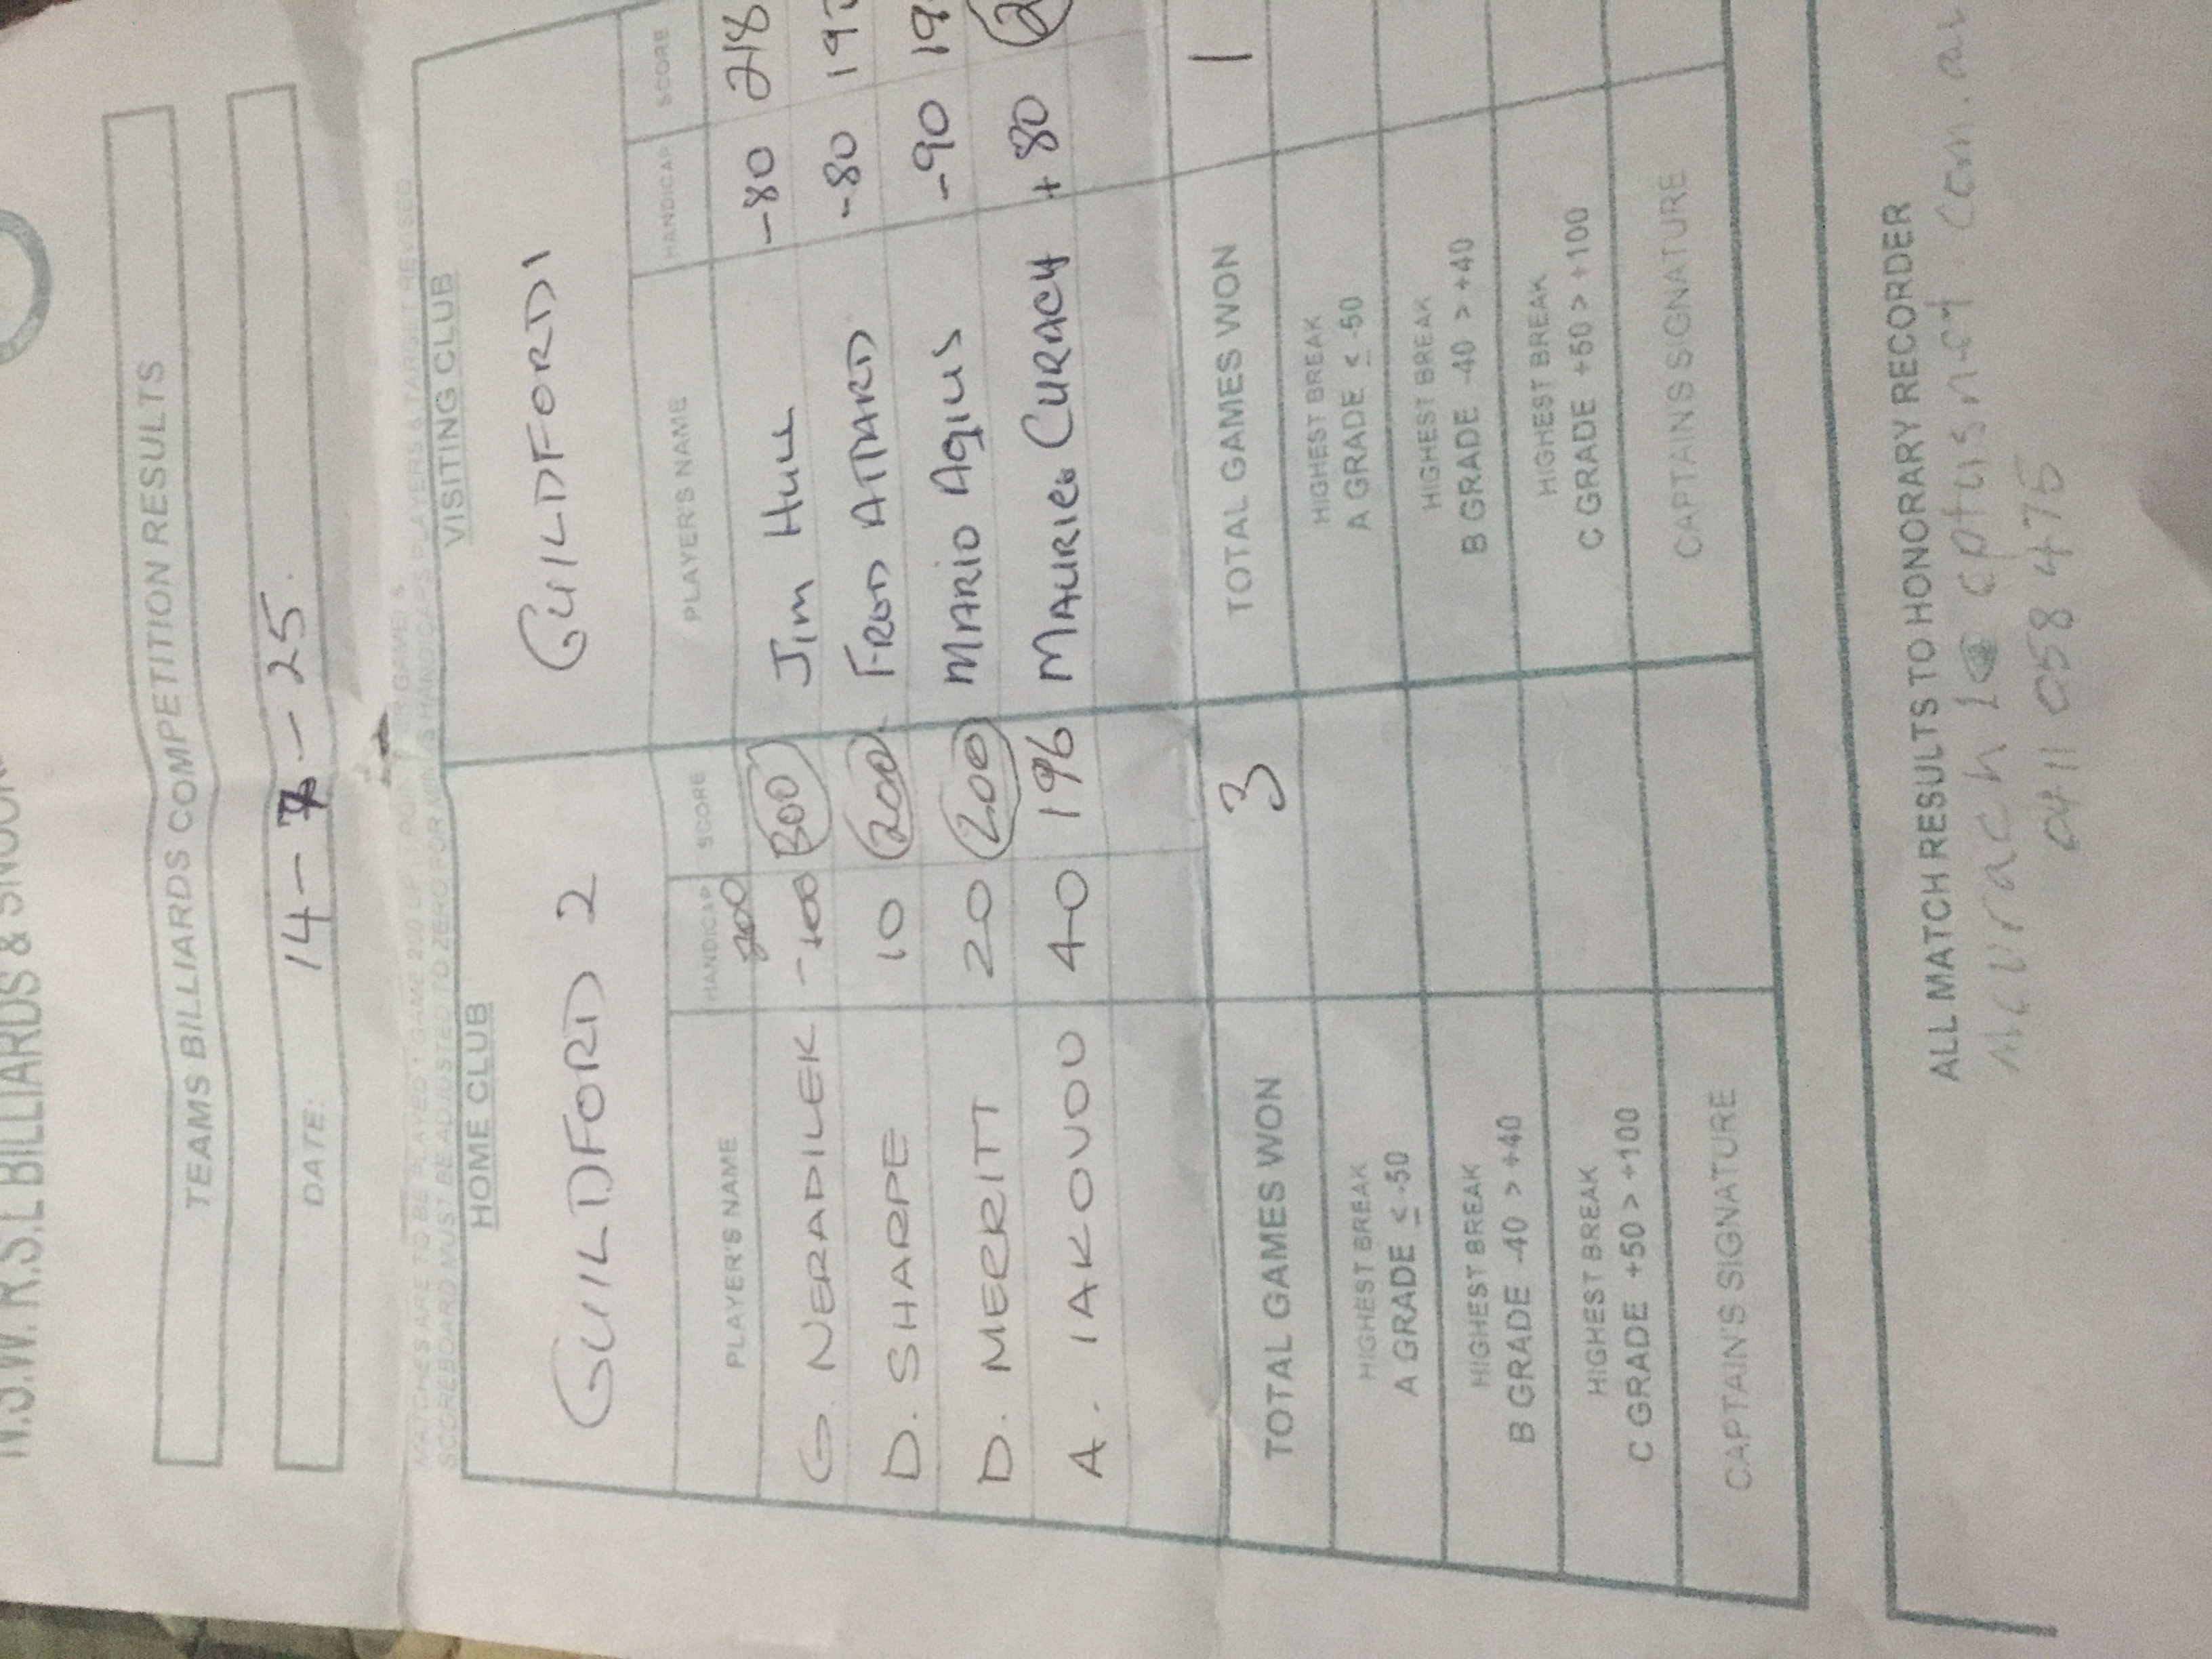 N.S.W. R.S.L BILLIARDS &
TEAMS BILLIARDS COMPETITION RESULTS
DATE: 14 - 7 - 25.
MATCHES ARE TO BE PLAYED 1 GAME 200 UP
SCOREBOARD MUST BE ADJUSTED TO ZERO FOR HANDICAPS PLAYERS & TARGET REVISED
HOME CLUB VISITING CLUB
GUILDFORD 2 GUILDFORD 1
PLAYER'S NAME HANDICAP SCORE PLAYER'S NAME HANDICAP SCORE
G. NERADILEK 300 Jim Hull -80 218
D. SHARPE 10 200 FRED ATTARD -80 19
D. MERRITT 20 200 MARIO AGIUS -90 19
A. IAKOVOU 40 196 MAURICE CURRACH +80 2
TOTAL GAMES WON 3 TOTAL GAMES WON 1
HIGHEST BREAK HIGHEST BREAK
A GRADE ≤ -50 A GRADE ≤ -50
HIGHEST BREAK HIGHEST BREAK
B GRADE -40 > +40 B GRADE -40 > +40
HIGHEST BREAK HIGHEST BREAK
C GRADE +50 > +100 C GRADE +50 > +100
CAPTAIN'S SIGNATURE CAPTAIN'S SIGNATURE
ALL MATCH RESULTS TO HONORARY RECORDER
mcurrach1@optusnet.com.au
0411 058 475